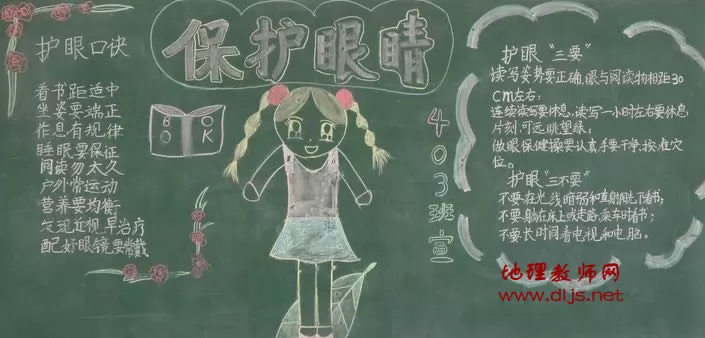 保护眼睛
护眼口诀
看书距适中
坐姿要端正
作息有规律
睡眠要保证
阅读勿太久
户外常运动
营养要均衡
发现近视早治疗
配好眼镜要常戴
BOOK
403班宣
护眼“三要”
读写姿势要正确,眼与阅读物相距30
CM左右;
连续读写要休息,读写一小时左右要休息
片刻,可远眺望绿;
做眼保健操要认真手要干净,按准穴
位。
护眼“三不要”
不要在光线暗弱和直射阳光下看书;
不要躺在床上或走路乘车时看书;
不要长时间看电视和电脑。
地理教师网
www.dljs.net